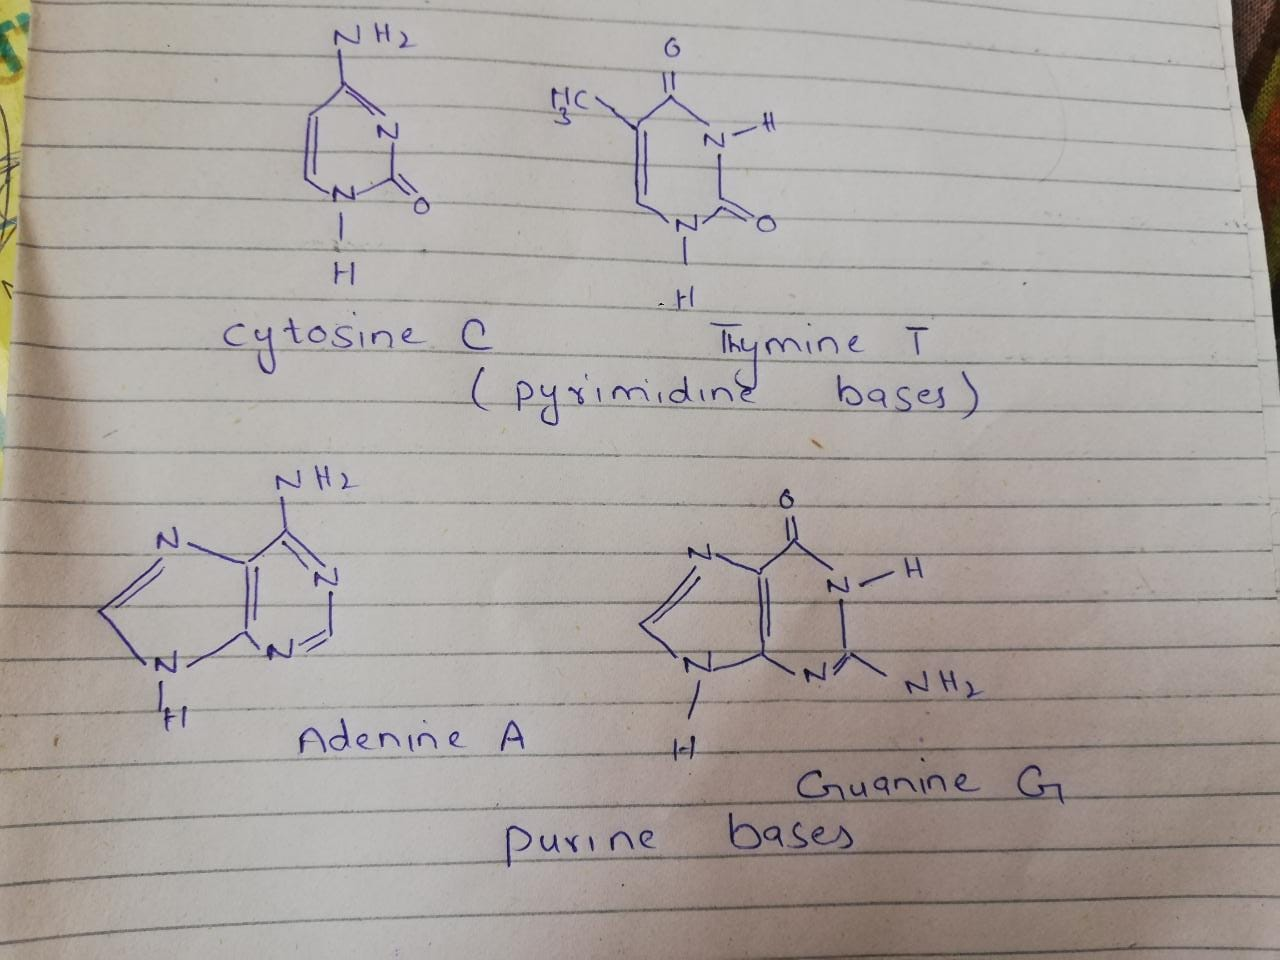 NH2
O
H3C
N
H
N
N
O
N
O
H
H
Cytosine C
Thymine T
(pyrimidine bases)
NH2
N
N
N
N
H
Adenine A
O
N
N
H
N
N
NH2
H
Guanine G
Purine bases